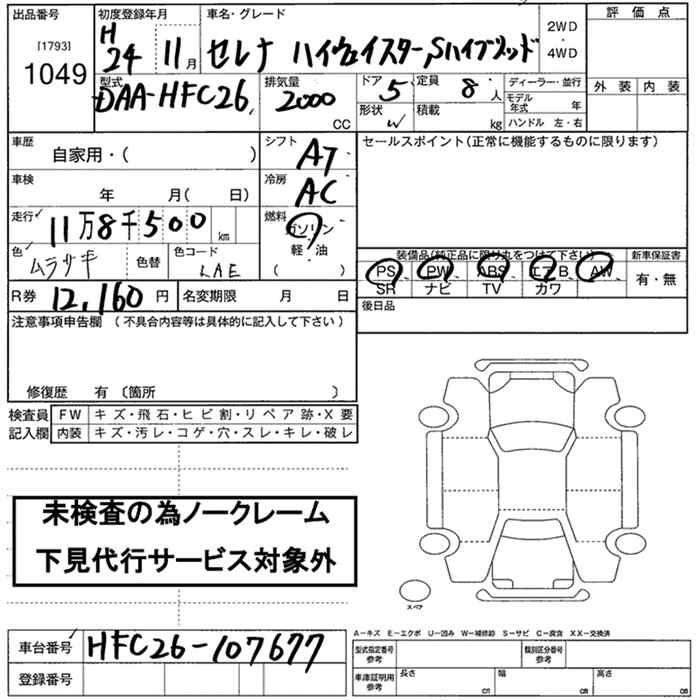 出品番号
[1793]
1049
初度登録年月
H
24 11月
車名・グレード
セレナ ハイウェイスター,Sハイブリッド
2WD
・
4WD
評価点
外装 内装
型式
DAA-HFC26
排気量
2000
CC
ドア 5
定員 8人
形状 W
積載 kg
ディーラー・並行
モデル年式 年
ハンドル 左・右
車歴
自家用・( )
シフト AT
セールスポイント(正常に機能するものに限ります)
車検
年 月( 日)
冷房 AC
走行 11万8千500km
燃料
ガソリン
軽・油
( )
色 ムラサキ 色替
色コード LAE
装備品(純正品に限り丸をつけて下さい)
PS PW ABS エアB AW
SR ナビ TV カワ
新車保証書
有・無
R券 12,160円
名変期限 月 日
後日品
注意事項申告欄(不具合内容等は具体的に記入して下さい)
修復歴 有〔箇所 〕
検査員記入欄
FW キズ・飛石・ヒビ割・リペア跡・X要
内装 キズ・汚レ・コゲ・穴・スレ・キレ・破レ
未検査の為ノークレーム
下見代行サービス対象外
スペア
車台番号 HFC26-107677
登録番号
A−キズ E−エクボ U−凹み W−補修跡 S−サビ C−腐食 XX−交換済
型式指定番号参考
類別区分番号参考
車庫証明用参考
長さ cm 幅 cm 高さ cm